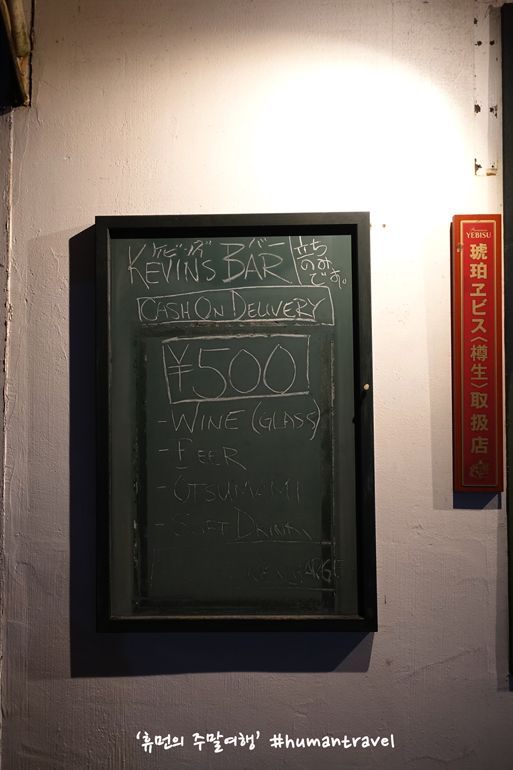 ケビンズバー
KEVIN'S BAR
立ち
のみ
です。
CASH ON DELIVERY
¥500
- WINE (GLASS)
- BEER
- OTSUMAMI
- SOFT DRINK
YEBISU
琥珀ヱビス〈樽生〉取扱店
'휴먼의 주말여행' #humantravel